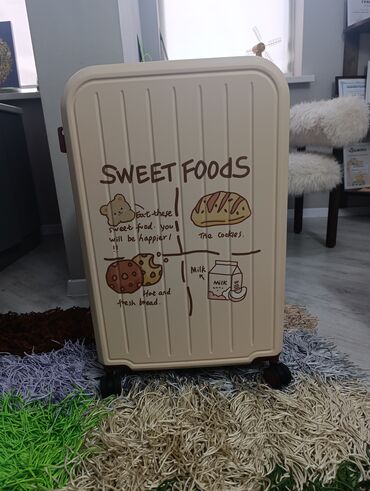 SWEET FOODS
Eat these
sweet food. you
will be happier!
!!
The cookies.
Hot and
fresh bread.
Milk
K
MILK